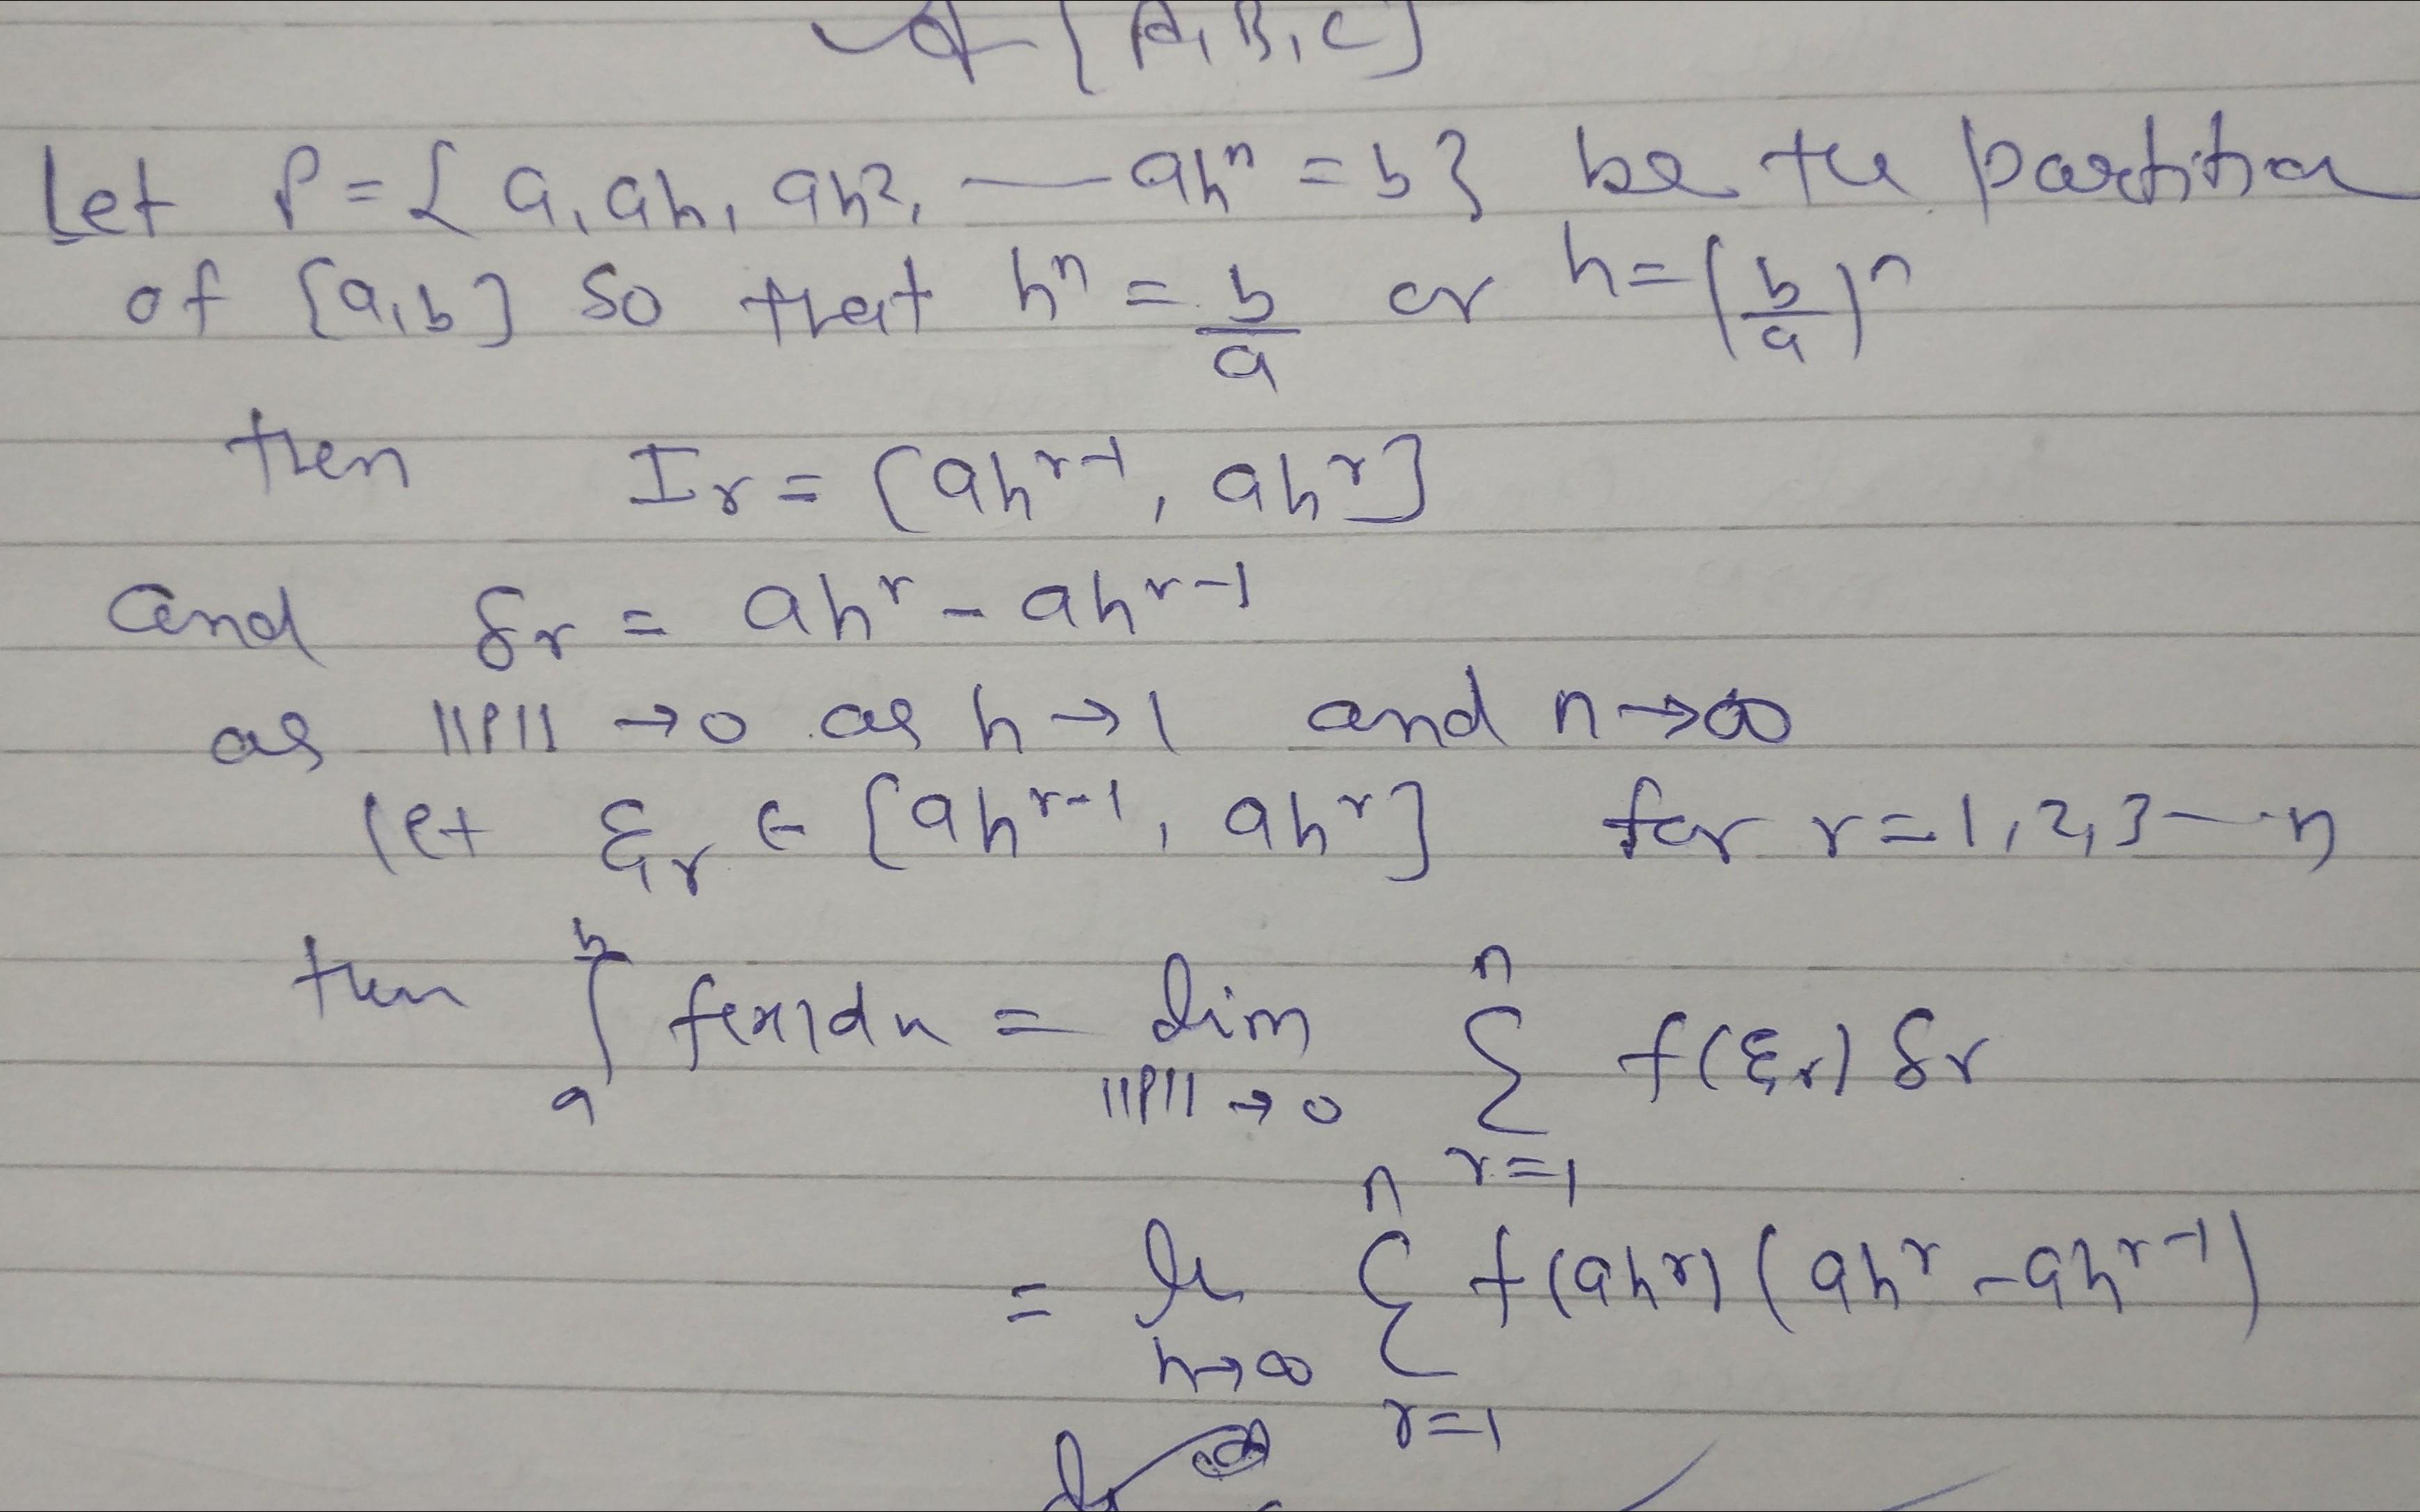 [A, B, C]
Let P = { a, ah, ah², — ahⁿ = b } be the partition
of [a, b] so that hⁿ = b/a or h = (b/a)ⁿ
then Iᵣ = [ahʳ⁻¹, ahʳ]
and δᵣ = ahʳ - ahʳ⁻¹
as ||P|| → 0 as h → 1 and n → ∞
let ξᵣ ∈ [ahʳ⁻¹, ahʳ] for r = 1, 2, 3 --- n
then ∫ₐᵇ f(x) dx = lim ||P|| → 0 ∑ⁿ r=1 f(ξᵣ) δr
= lt n → ∞ ∑ⁿ r=1 f(ahʳ) (ahʳ - ahʳ⁻¹)